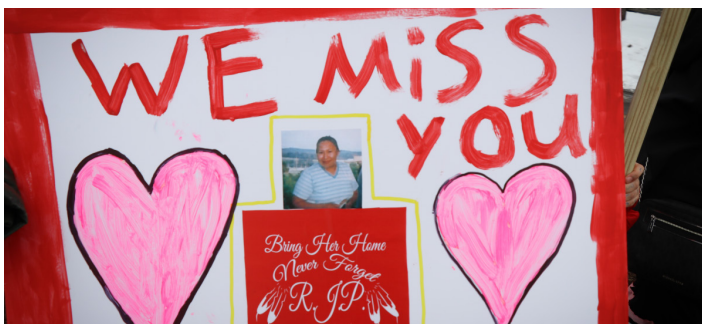 WE MiSS
YOU
Bring Her Home
Never Forget
R.JP.